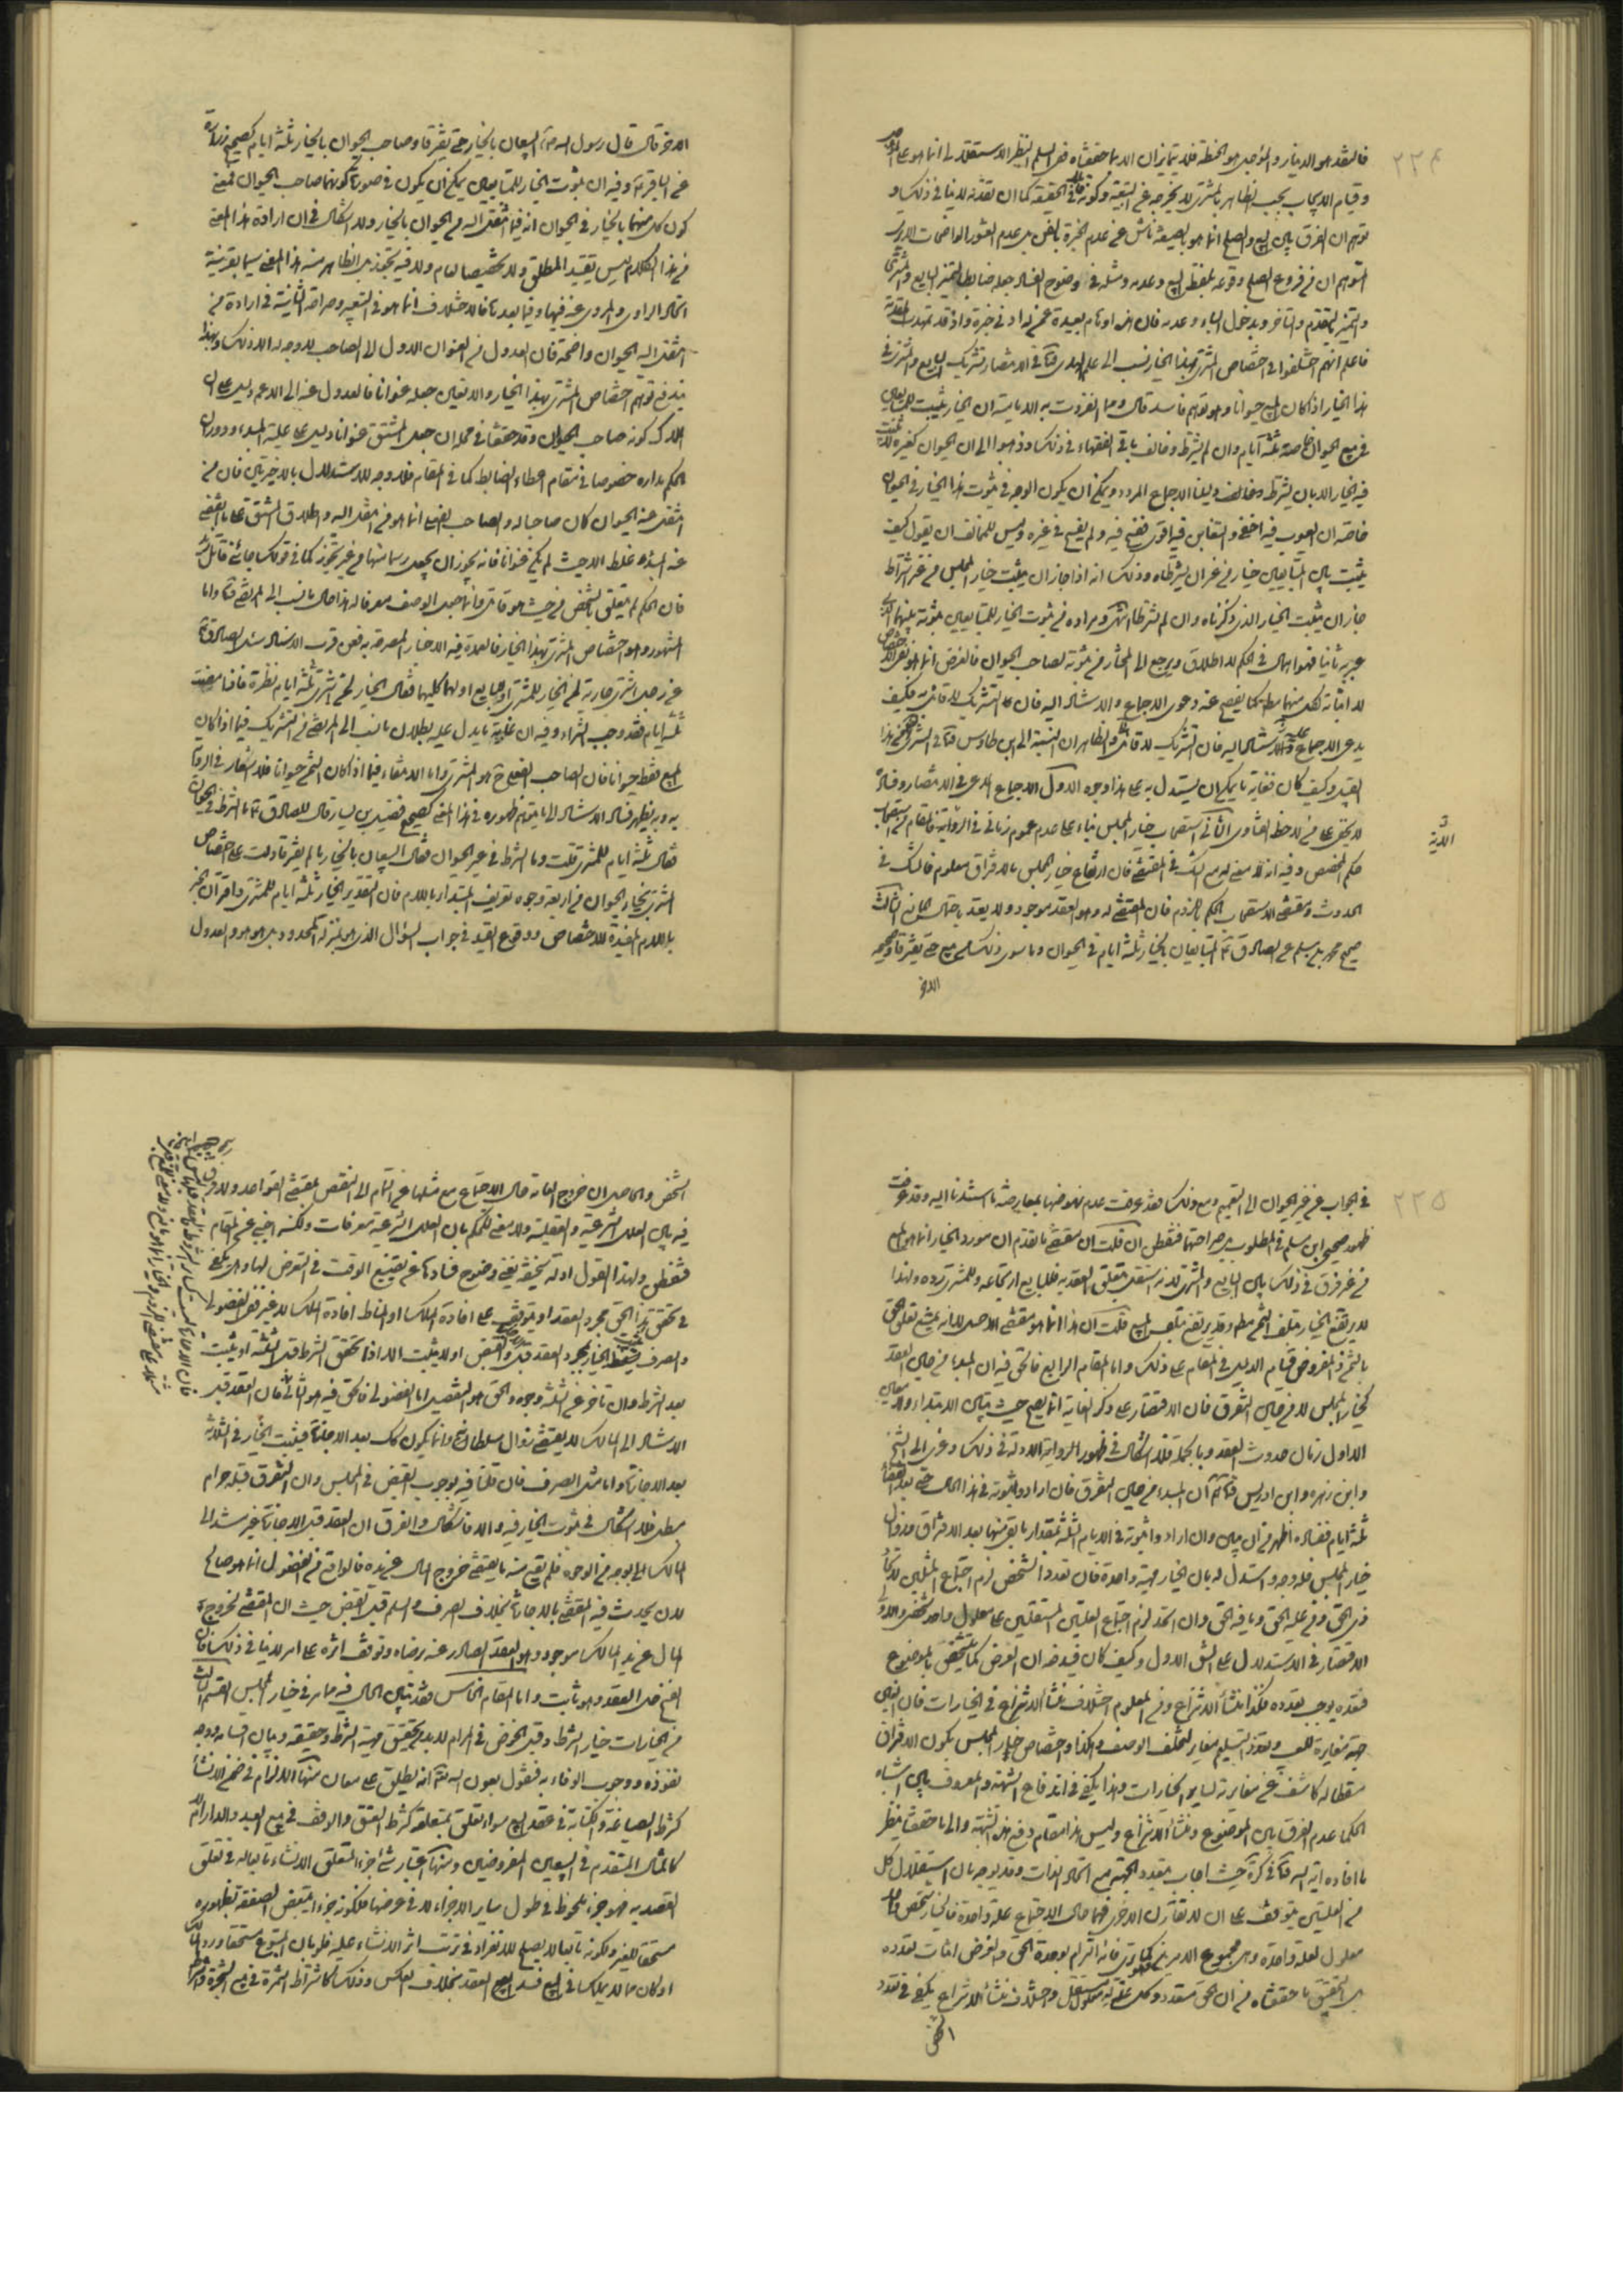 ٢٢٤
فالنقد هو الدينار والمؤجل هو الحنطة فلا يتمايزان الا بما حققناه ففي السلم النظر الاستقلالي انما هو على
وقيام الايجاب بجيب الظاهر بالمشتري لا يخرجه عن التبعية وكونه في الحقيقة كما ان تقدمه لا ينافي ذلك و
توهم ان الفرق بين البيع والصلح انما هو بالصيغة ناش عن عدم الخبرة بل عن عدم العثور الواضحات
التوهم ان في فروع الصلح وقوعه بلفظ البيع وعدمه ومثله في وضوح الفساد جعل ضابط التميز البايع والمشتري
والتميز بالتقدم والتاخر وبدخول الباء وعدمه فان هذه اوهام بعيدة عمن له ادنى خبرة واذ قد تمهدت المقدمة
فاعلم انهم اختلفوا في اختصاص المشتري بهذا الخيار نسب الى علم الهدى في الانتصار تشريك البايع والمشتري في
هذا الخيار اذا كان المبيع حيوانا وهو توهم فاسد قال ومما انفردت به الامامية ان الخيار يثبت للمتبايعين
في بيع الحيوان خاصة ثلثة ايام وان لم يشترط وخالف باقي الفقهاء في ذلك وذهبوا الى ان الحيوان كغيره
فيه الخيار الا بان يشترط دليلنا الاجماع المردد ويمكن ان يكون الوجه في ثبوت هذا الخيار في الحيوان
خاصة ان العيوب فيه اخفى والتغابن فيه اقوى ففسح فيه ولم يفسح في غيره وليس للمخالف ان يقول كيف
يثبت بين المتبايعين خيار من غير ان يشترطاه وذلك انه اذا جاز ان يثبت خيار المجلس من غير اشتراط
جاز ان يثبت الخيار الذي ذكرناه وان لم يشترط انتهى ومراده من ثبوت الخيار للمتبايعين ثبوته بينهما
عبر به ثانيا فهو اهمال في الحكم لا اطلاق ويرجع الى المختار من ثبوته لصاحب الحيوان فالغرض انما هو نفي
لا اثباته لكل منهما مطلقا كما يفصح عنه دعوى الاجماع والاشارة اليه فان التشريك لا قائل به فكيف
يدعى الاجماع عليه فان التشريك لا قائل به والظاهر ان النسبة الى ابن طاوس في التشريك من هذا
القبيل وكيف كان فغاية ما يمكن ان يستدل به على هذا وجوه الاول الاجماع المدعى في الانتصار وفساده
لا يخفى على من لاحظ الفتاوى الثاني استصحاب خيار المجلس بناء على عدم عموم زماني في الرواية فالمقام
حكم المخصص وفيه انه لا معنى له مع الشك في المقتضي فان ارتفاع خيار المجلس بالافتراق معلوم فالشك في
الحدوث ومقتضى الاستصحاب الحكم باللزوم فان المقتضي له وهو العقد موجود ولا يعتد باحتمال المانع الثالث
صحيح محمد بن مسلم عن الصادق المتبايعان بالخيار ثلثة ايام في الحيوان وما سوى ذلك من بيع حتى يفترقا وصحيحه
الاخر
الاخر قال قال رسول الله البيعان بالخيار حتى يفترقا وصاحب الحيوان بالخيار ثلثة ايام كصحيح زرارة
عن الباقر وفيه ان ثبوت الخيار للمتبايعين يمكن ان يكون في صورة كونهما صاحب الحيوان فمعنى
كون كل منهما بالخيار في الحيوان انه فيما انتقل اليه من الحيوان بالخيار ولا اشكال في ان ارادة هذا المعنى
من هذا الكلام ليس تقييد المطلق ولا تخصيصا لعام ولا فيه تجوز بل الظاهر منه هذا المعنى سيما بقرينة
اتحاد الراوي والمروي عنه فيها وفيما بعدها فالاختلاف انما هو في التعبير وصراحة الثانية في ارادة من
انتقل اليه الحيوان واضحة فان العدول من العنوان الاول الى الصاحب لا وجه له الا ذلك وبهذا
يندفع توهم اختصاص المشتري بهذا الخيار والا تعين جعله عنوانا فالعدول عنه الى الاعم دليل على ان
الملاك كونه صاحب الحيوان وقد حققنا في محله ان جعل المشتق عنوانا دليل على علية المبدء ودوران
الحكم مداره خصوصا في مقام اعطاء الضابط كما في المقام فلا وجه للاستدلال بالاخيرتين فان من
انتقل عنه الحيوان كان صاحبا له والصاحب بالفعل انما هو من انتقل اليه واطلاق المشتق على ما انقضى
عنه المبدء غلط الا حيث لم يكن عنوانا فانه يجوز ان يجعل رسما منها من غير تجوز كما في قولك جائني قاتل
فان الحكم لم يتعلق بالشخص من حيث هو قاتل وانما جعل الوصف معرفا له هذا حال ما نسب الى المرتضى واما
المشهور وهو اختصاص المشتري بهذا الخيار فالعمدة فيه الاخبار المصرحة به فعن قرب الاسناد سئل الصادق
عن رجل اشترى جارية لمن الخيار للمشتري او للبايع او لهما كليهما فقال الخيار لمن اشترى ثلثة ايام نظرة فاذا مضت
ثلثة ايام فقد وجب الشراء وفيه ان غاية ما يدل عليه بطلان ما نسب الى المرتضى من التشريك فيما اذا كان
المبيع فقط حيوانا فان الصاحب الفعلي ح هو المشتري واما الانتفاء فيما اذا كان الثمن حيوانا فلا اشعار في الرواية
به وبه يظهر فساد الاستناد الى ما يتوهم ظهوره في هذا المعنى كصحيح فضيل بن يسار قال للصادق ما الشرط في الحيوان
فقال ثلثة ايام للمشتري قلت وما الشرط في غير الحيوان فقال البيعان بالخيار ما لم يفترقا دلت على اختصاص
المشتري بخيار الحيوان من اربعة وجوه تعريف المبتدا باللام فان التقدير الخيار ثلثة ايام للمشتري واقتران الخبر
باللام المفيدة للاختصاص ووقوع القيد في جواب السؤال الذي هو بمنزلة الحد والعدول
٢٢٥
في الجواب عن غير الحيوان الى التعميم ومع ذلك فقد عرفت عدم نهوضها بمعارضة ما استندنا اليه وقد عرفت
ظهور صحيحي ابن مسلم في المطلوب بل صراحتهما فتفطن ان قلت ان مقتضى ما تقدم ان مورد الخيار انما هو المبيع
من غير فرق في ذلك بين البايع والمشتري لانه انتقل بتعلق العقد به فللبايع ارتجاعه وللمشتري رده ولهذا
لا يرتفع الخيار بتلف الثمن مطلقا وقد يرتفع بتلف المبيع قلت ان هذا انما هو مقتضى الاصل الا انه يمتنع تعلق الحق
بالثمن المفروض لقيام الدليل في المقام على ذلك واما المقام الرابع فالحق فيه ان المبدأ من حين العقد
كخيار المجلس لا من حين التفرق فان الاقتصار على ذكر الغاية انما يصح حيث تبين الابتداء
الاول زمان حدوث العقد وبالجملة فلا اشكال في ظهور الرواية الاولة في ذلك وعزى الى الشيخ
وابن زهره وابن ادريس ان المبدء من حين التفرق فان ارادوا ثبوته في هذا الحال حتى بعد انقضاء
ثلثة ايام ففساده اظهر من ان يبين وان ارادوا ثبوته في الايام الثلثة بمقدار ما بقي منها بعد الافتراق وزوال
خيار المجلس فله وجه واستدل له بان الخيار مهية واحدة فان تعدد الشخص لزم اجتماع المثلين
ذي الحق ومن عليه الحق وما فيه الحق وان اتحد لزم اجتماع العلتين المستقلتين على معلول واحد شخصي
الاقتصار في الاستدلال على الشق الاول وكيف كان فيدفعه ان العرض كما يتشخص بالموضوع
فتعدده يوجب تعدده فكذا منشأ الانتزاع ومن المعلوم اختلاف منشأ الانتزاع في الخيارات فان الغبن
جهة مغايرة للعيب وتعذر التسليم مغاير لتخلف الوصف وهكذا واختصاص خيار المجلس بكون الافتراق
مسقطا له كاشف عن مغايرته لساير الخيارات وهذا يكفي في اندفاع الشبهة والمعروف بين اشباه
الحكماء عدم الفرق بين الموضوع ومنشأ الانتزاع وليس هذا مقام دفع هذه الشبهة والى ما حققناه ينظر
ما افاده اية الله في كره حيث اجاب بتعدد الجهة مع اتحاد الذات وقد يوجه بان استقلال كل
من العلتين يتوقف على ان لا تقارن الاخرى فهما حال الاجتماع علة واحدة فالخيار شخص واحد
معلول لعلة واحدة وهي مجموع الامرين وهو كما ترى فانه التزام بوحدة الحق والغرض اثبات تعدده
بل التحقيق ما حققناه من ان الحق متعدد وكل علة له معلول مستقل واختلاف منشأ الانتزاع يكفي في تعدد
الشخص
الشخص والحاصل ان خروج العلة حال الاجتماع مع مثلها عن التمام الى النقص بمقتضى القواعد ولا فرق
فيه بين العلل الشرعية والعقلية ولا معنى للحكم بان العلل الشرعية معرفات ولكنه اجنبي عن المقام
فتفطن ولهذا القول ادلة سخيفة يغني وضوح فسادها عن تضييع الوقت في التعرض لها وهل يكفي
في تحقق هذا الحق مجرد العقد او يتوقف على افادة الملك او المناط افادة الملك لا غير ففي الفضولي
والصرف يثبت الخيار بمجرد العقد قبل الاجازة والقبض او لا يثبت الا اذا تحقق الشرط قبل الثلثة او يثبت
بعد الشرط وان تاخر عن الثلثة وجوه والحق هو التفصيل اما الفضولي فالحق فيه هو الثاني فان العقد قبل
الاستناد الى المالك لا يقتضي زوال سلطان وانما يكون كك بعد الاجازة فيثبت الخيار في الثلثة
بعد الاجازة واما مثل الصرف فان قلنا فيه بوجوب القبض في المجلس وان التفرق قبله حرام
مطلقا فلا اشكال في ثبوت الخيار فيه والا فاشكال والفرق ان العقد قبل الاجازة غير مستند الى
المالك الى بوجه من الوجوه فلم يقع منه ما يقتضي خروج المال عن يده فالواقع من الفضولي انما هو صالح
لان يحدث فيه المقتضي بالاجازة بخلاف الصرف والسلم قبل القبض حيث ان المقتضي لخروج
المال عن يد المالك موجود وهو العقد الصادر عنه برضاه وتوقف اثره على امر لا ينافي ذلك فان
الفسخ حل العقد وهو ثابت واما المقام الخامس فقد تبين الحال فيه مما مر في خيار المجلس القسم الثالث
من الخيارات خيار الشرط وقبل الخوض في المرام لا بد من تحقيق مهية الشرط وحقيقته وبيان اقسامه ووجه
نفوذه ووجوب الوفاء به فنقول بعون الله انه يطلق على معان منها الالتزام في ضمن الانشاء
كشرط الصياغة والكتابة في عقد البيع سواء تعلق بمتعلقه كشرط العتق والوقف في بيع العبد والدار ام لا
كالمثال المتقدم في البيعين المفروضين ومنها اعتبار شئ جزء المتعلق الانشاء تابعا له في تعلق
القصد به فهو جزء ملحوظ في طول ساير الاجزاء لا في عرضها فلكونه جزء يتبعض الصفقة بظهوره
مستحقا للغير ولكونه تابعا لا يصلح للانفراد في ترتب اثر الانشاء عليه فلو بان المتبوع مستحقا ورد المالك
او كان مما لا يملك في البيع فسد العقد بخلاف العكس وذلك كاشتراط الثمرة في بيع الشجرة